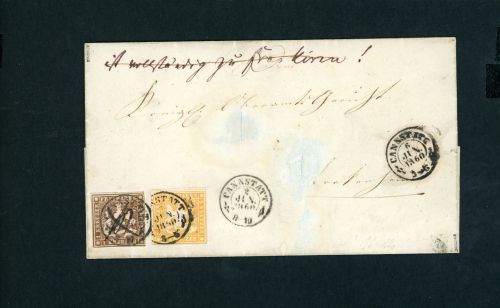 ist vollständig zu frankiren!
Königl. Oberamts Gericht
CANNSTATT
6
JUN.
1860
3-6
CANNSTATT
2
JUN.
1860
8-10
NNSTATT
JUN.
1860
3-6